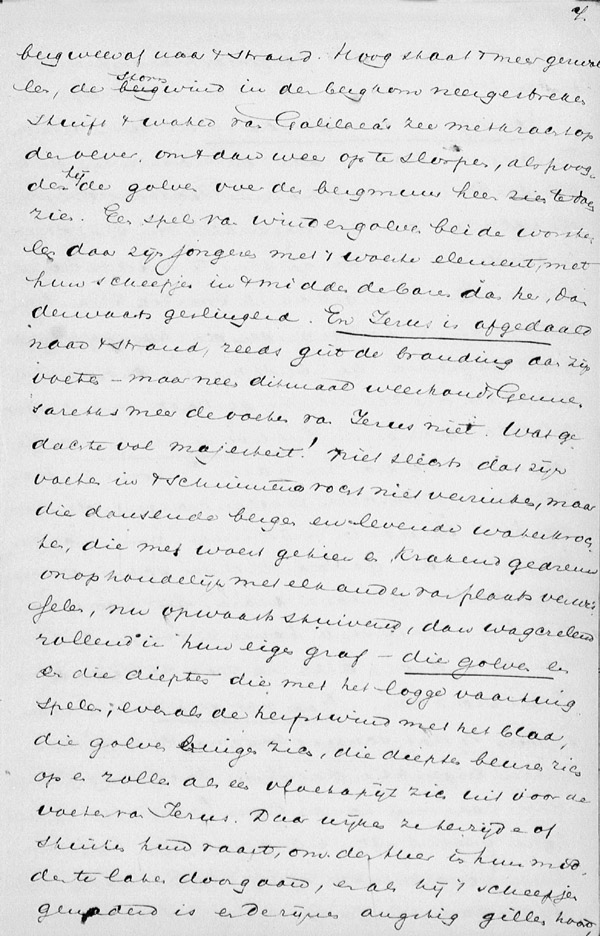 4.
bergweer af naar 't strand. Hoog staat 't meer gezwol
len, de storm wind in de bergkom neergestreken
stuift 't water van Galilaea's zee met kracht op
den oever, om 't dan weer op te slorpen, als poog
de hij de golven over den bergmuur heen te
zien. Een spel van wind en golven beide worste
len daar zijn jongeren met 't woeste element, met
hun scheepjes in 't midden der baren dan her, dan
derwaarts geslingerd. En Jezus is afgedaald
naar 't strand, reeds gut de branding aan zijn
voeten – maar neen ditmaal weerhoudt Genne
sareths meer de voeten van Jezus niet. Wat ge
dachte vol majesteit! Niet slechts dat zijn
voeten in 't schuimend vocht niet verzinken, maar
die dansende bergen en levende waterkroc
ten, die met woest getier en krakend gedreun
onophoudelijk met elkander van plaats verwis
selen, nu opwaarts stuivend, dan waggelend
rollend in hun eigen graf – die golven en
die diepten die met het logge vaartuig
spelen, evenals de herfstwind met het blad,
die golven buigen zich, die diepten beuren zich
op en rollen als een vloertapijt zich uit voor de
voeten van Jezus. Daar wijken ze terzijde of
stuiten hun vaart, om den Heer in hun mid
den te laten doorgaan, en als hij 't scheepje
genaderd is en de zijnen angstig gillen hoort,